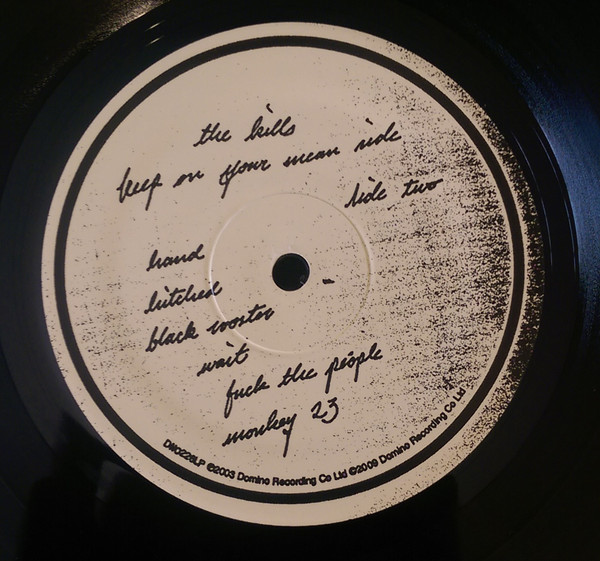 the kills
keep on your mean side
side two
hand
hitched
black rooster
wait
fuck the people
monkey 23
DWO228LP ℗2003 Domino Recording Co Ltd ©2009 Domino Recording Co Ltd